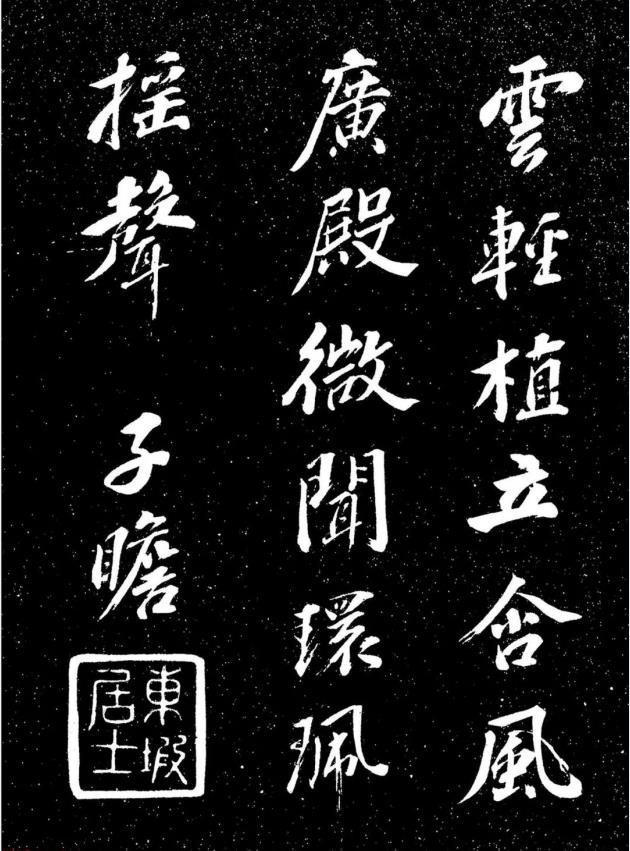 雲輕植立含風
廣殿微聞環珮
搖聲 子瞻
東坡居士